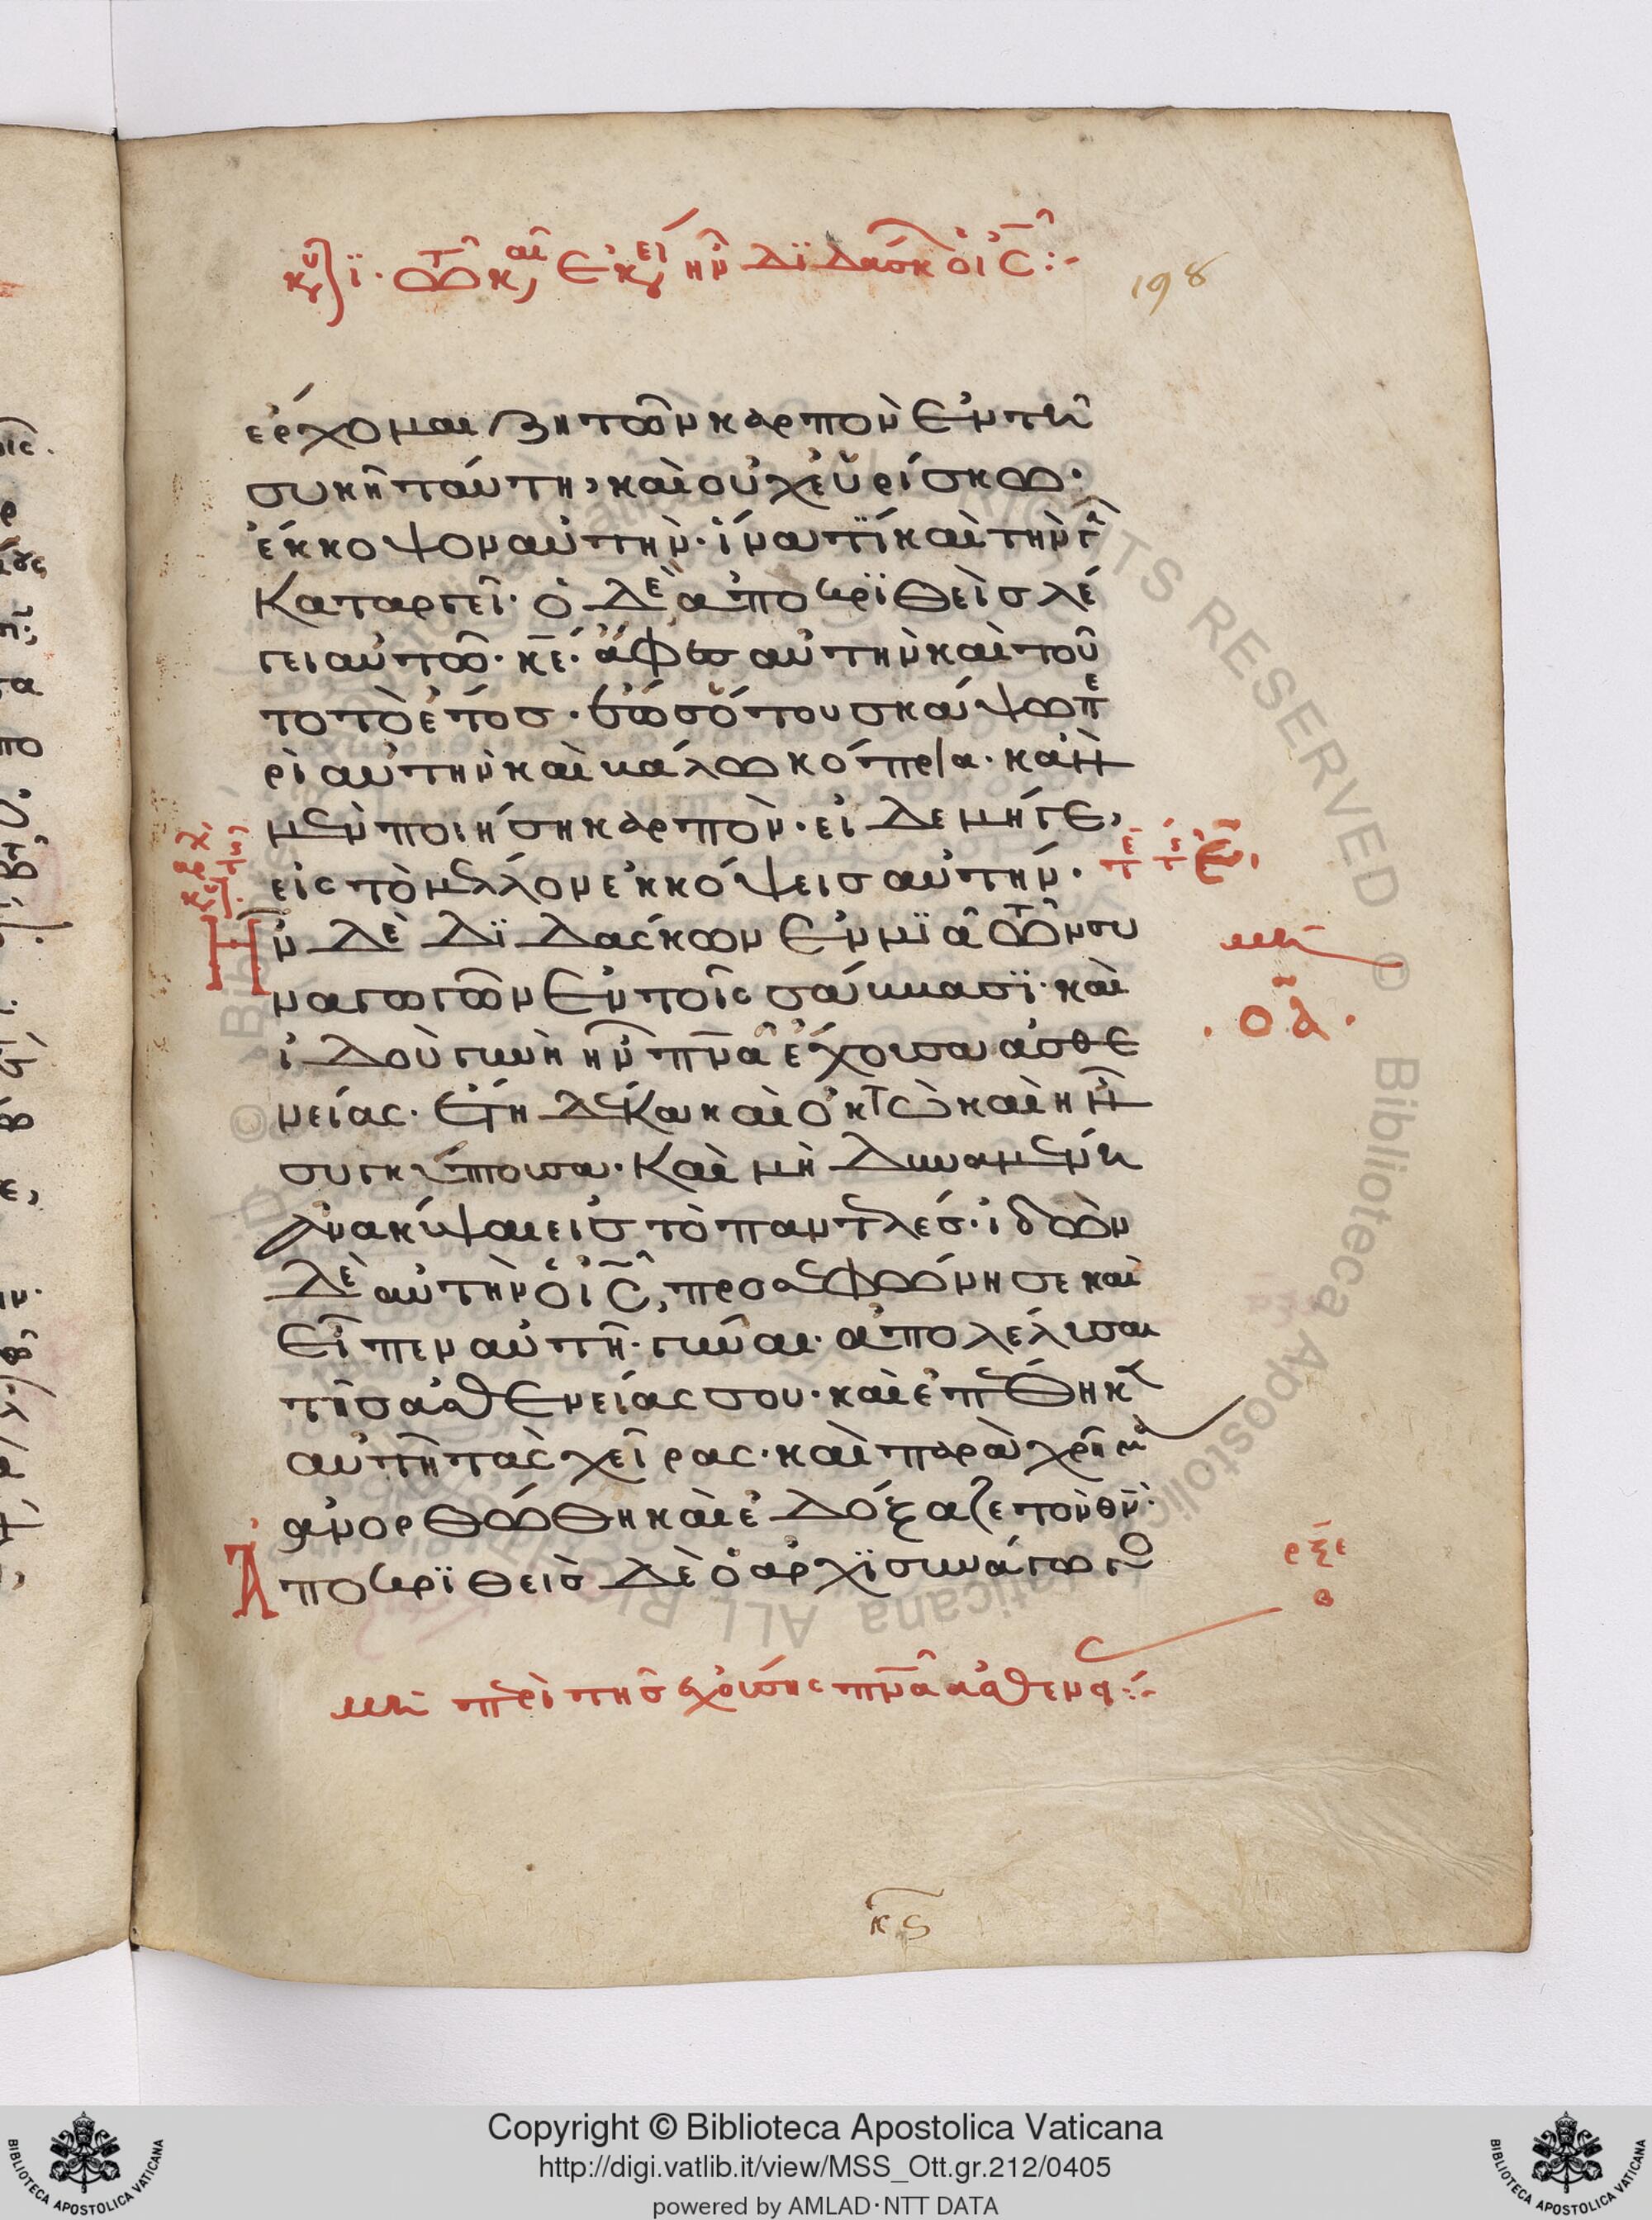 198
ἔρχομαι ζητῶν καρπὸν ἐν τῆ
συκῆ ταύτη, καὶ οὐχ εὑρίσκω·
ἔκκοψον αὐτὴν· ἵνατί καὶ τὴν γῆ
καταργεῖ· ὁ δὲ ἀποκριθεὶς λέ
γει αὐτῶ· κε̄· ἄφες αὐτὴν καὶ τοῦ
το τὸ ἔτος· ἕως ὅτου σκάψω πε
ρὶ αὐτὴν καὶ βάλω κόπρια· κἂν
μὲν ποιήση καρπὸν· εἰ δὲ μήγε,
εἰς τὸ μέλλον ἐκκόψεις αὐτήν·
Ἦν δὲ διδάσκων ἐν μιᾶ τῶν συ
ναγωγῶν ἐν τοῖς σάββασι· καὶ
ἰδοὺ γυνὴ ἦν πν̄α ἔχουσα ἀσθε
νείας· ἔτη δέκα καὶ ὀκτὼ καὶ ἦν
συγκύπτουσα· καὶ μὴ δυναμένη
ἀνακύψαι εἰς τὸ παντελές· ἰδὼν
δὲ αὐτὴν ὁ ις̄, προσεφώνησε καὶ
εἶπεν αὐτῆ· γύναι· ἀπολέλυσαι
τῆς ἀσθενείας σου· καὶ ἐπέθηκεν
αὐτῆ τὰς χεῖρας· καὶ παραχρῆμα
ἀνορθώθη καὶ ἐδόξαζε τὸν θν̄·
Ἀποκριθεὶς δὲ ὁ ἀρχισυνάγωγος
ρξε
θ
περὶ τῆς ἐχούσης πν̄α ἀσθεν:
κς
Copyright © Biblioteca Apostolica Vaticana
http://digi.vatlib.it/view/MSS_Ott.gr.212/0405
powered by AMLAD·NTT DATA